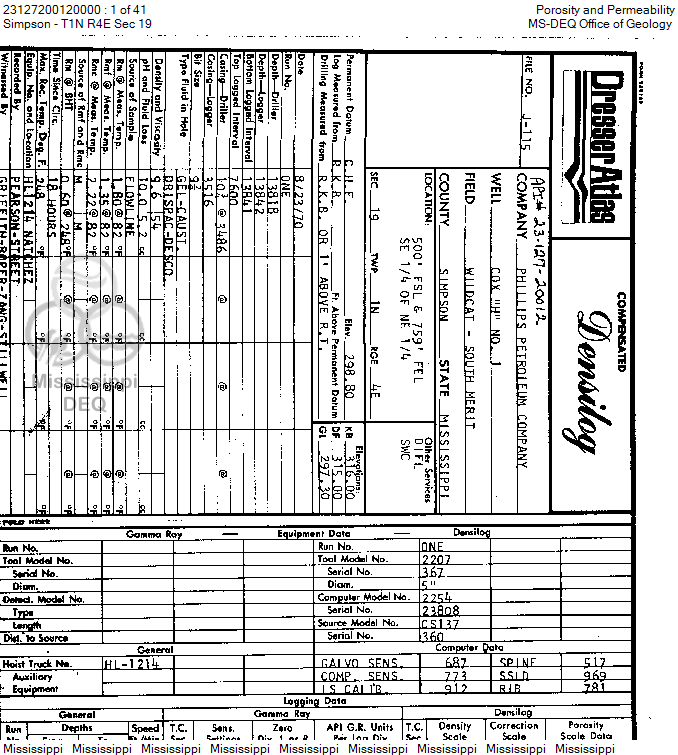 23127200120000 : 1 of 41
Porosity and Permeability
Simpson - T1N R4E Sec 19
MS-DEQ Office of Geology
Dresser Atlas
COMPENSATED
Densilog
FILE NO. J-115
API# 23-127-20012
COMPANY PHILLIPS PETROLEUM COMPANY
WELL COX "H" NO. 1
FIELD WILDCAT - SOUTH MERIT
COUNTY SIMPSON STATE MISSISSIPPI
LOCATION:
500' FSL & 759' FEL
SE 1/4 OF NE 1/4
Other Services
DIFL
SWC
SEC 19 TWP 1N RGE 4E
Permanent Datum G.H.F. Elev. 298.80
Log Measured from R.K.B. Ft. Above Permanent Datum
Drilling Measured from R.K.B. OR 1' ABOVE R.T.
Elevations:
KB 316.00
DF 315.00
GL 297.30
Date 8/23/70
Run No. ONE
Depth-Driller 13818
Depth-Logger 13842
Bottom Logged Interval 13841
Top Logged Interval 7600
Casing-Driller 10 3/4 @ 3486 @ @ @
Casing-Logger 3516
Bit Size
Type Fluid in Hole GEL-CAUST
DRISPAC-DESCO
Density and Viscosity 54
pH and Fluid Loss 10.0 5.2 cc cc cc cc
Source of Sample FLOWLINE
Rm @ Meas. Temp. 1.80 @ 82 °F @ °F @ °F @ °F
Rmf @ Meas. Temp. 1.35 @ 82 °F @ °F @ °F @ °F
Rmc @ Meas. Temp. 2.22 @ 82 °F @ °F @ °F @ °F
Source of Rmf and Rmc M M
Rm @ BHT 0.60 @ 248 °F @ °F @ °F @ °F
Time Since Circ. 18 HOURS
Max. Rec. Temp. Deg. F. 248 °F °F °F °F
Equip. No. and Location HL1214 NATCHEZ
Recorded By PEARSON-STREET
Witnessed By GRIFFITH-ROPER-ZANG-STILLWELL
Mississippi
DEQ
FOLD HERE
Gamma Ray — Equipment Data — Densilog
Run No. Run No. ONE
Tool Model No. Tool Model No. 2207
Serial No. Serial No. 367
Diam. Diam. 5"
Detect. Model No. Computer Model No. 2254
Type Serial No. 23808
Length Source Model No. CS137
Dist. to Source Serial No. 360
General Computer Data
Hoist Truck No. HL-1214 GALVO SENS. 687 SPINE 517
Auxiliary COMP. SENS. 773 SSLD 969
Equipment LS CALIB. 912 RIB 781
Logging Data
General Gamma Ray Densilog
Run Depths Speed T.C. Sens. Zero API G.R. Units T.C. Density Correction Porosity
No. From To Ft/Min Sec. Settings Div. L or R Per Log Div. Sec. Scale Scale Scale Data
Mississippi Mississippi Mississippi Mississippi Mississippi Mississippi Mississippi Mississippi Mississippi Mississippi